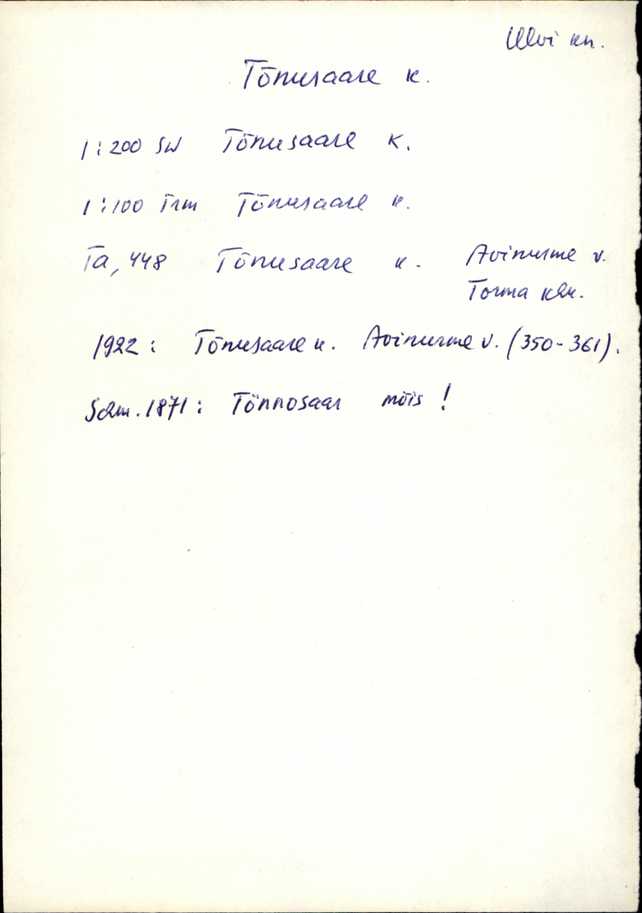 Ulvi kn.
Tõnusaare k.
1:200 SW Tõnusaare k.
1:100 Trm Tõnusaare k.
Ta, 448 Tõnusaare k. Avinurme v.
Torma khk.
1922: Tõnusaare k. Avinurme v. (350-361).
Schm. 1871: Tõnnosaar mõis!